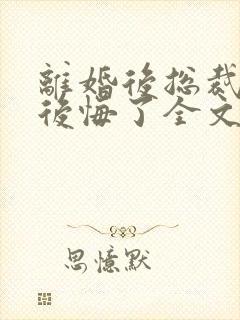 離婚後总裁
後悔了全文
思憶默